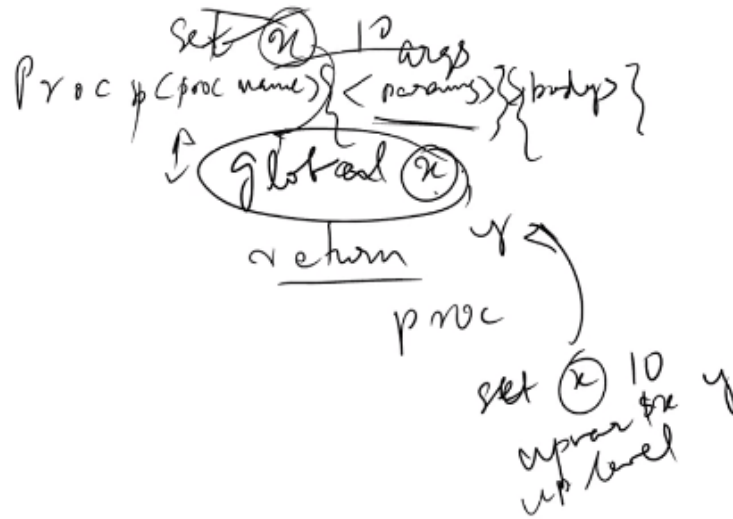 set x 10
args
Proc <proc name> { <params> } { <body> }
global x
return y
proc
set x 10 y
upvar $x
up level